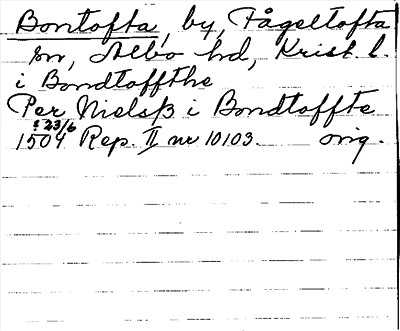 Bontofta, by, Fågeltofta
sn, Albo hd, Krist. l.
i Bondtoffthe
Per Nielsß i Bondtoffte
1504 23/6 Rep. II nr 10103. orig.